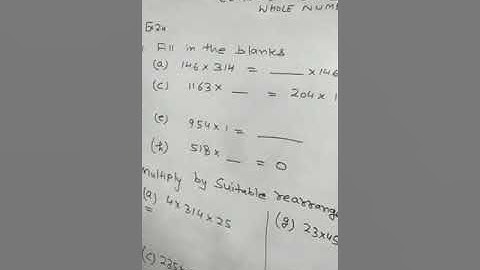 WHOLE NUM
Ex 2a
Fill in the blanks
(a) 146 × 314 = ____ × 146
(c) 1163 × __ = 204 × 1
(e) 954 × 1 = ____
(h) 518 × __ = 0
Multiply by Suitable rearrang
(a) 4 × 314 × 25
=
(g) 23×45
(c) 235